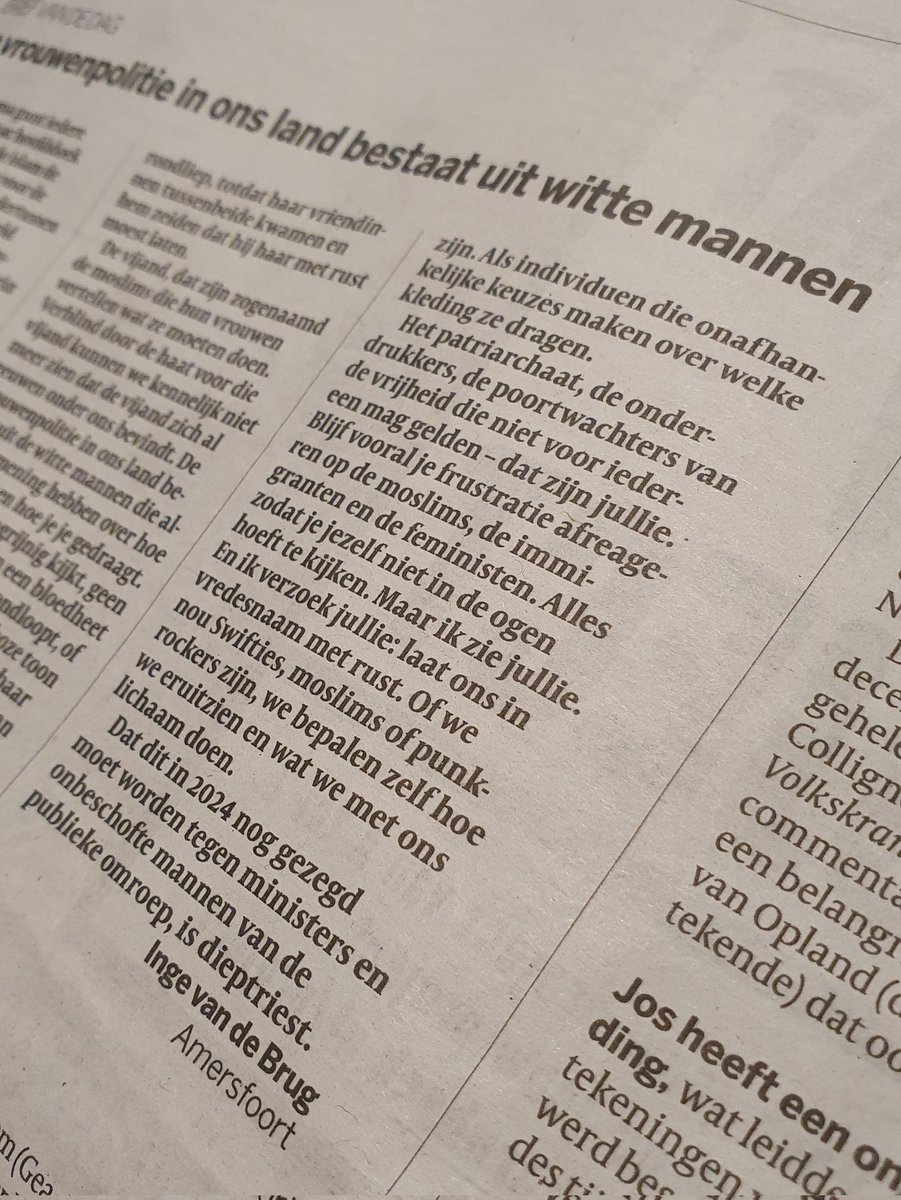 VAN DE DAG
vrouwenpolitie in ons land bestaat uit witte mannen
rondliep, totdat haar vriendin-
nen tussenbeide kwamen en
hem zeiden dat hij haar met rust
moest laten.
De vijand, dat zijn zogenaamd
de moslims die hun vrouwen
vertellen wat ze moeten doen.
Verblind door de haat voor die
vijand kunnen we kennelijk niet
meer zien dat de vijand zich al
eeuwen onder ons bevindt. De
vrouwenpolitie in ons land be-
de witte mannen die al-
mening hebben over hoe
en hoe je je gedraagt.
grijnig kijkt, geen
een bloedheet
rondloopt, of
toon
haar
zijn. Als individuen die onafhan-
kelijke keuzes maken over welke
kleding ze dragen.
Het patriarchaat, de onder-
drukkers, de poortwachters van
de vrijheid die niet voor ieder-
een mag gelden – dat zijn jullie.
Blijf vooral je frustratie afreage-
ren op de moslims, de immi-
granten en de feministen. Alles
zodat je jezelf niet in de ogen
hoeft te kijken. Maar ik zie jullie.
En ik verzoek jullie: laat ons in
vredesnaam met rust. Of we
nou Swifties, moslims of punk-
rockers zijn, we bepalen zelf hoe
we eruitzien en wat we met ons
lichaam doen.
Dat dit in 2024 nog gezegd
moet worden tegen ministers en
onbeschofte mannen van de
publieke omroep, is dieptriest.
Inge van de Brug
Amersfoort
N
D
dece
gehele
Collign
Volkskran
commenta
een belangr
van Opland (d
tekende) dat oo
Jos heeft een on
ding, wat leidde
tekeningen
werd bes
des tij